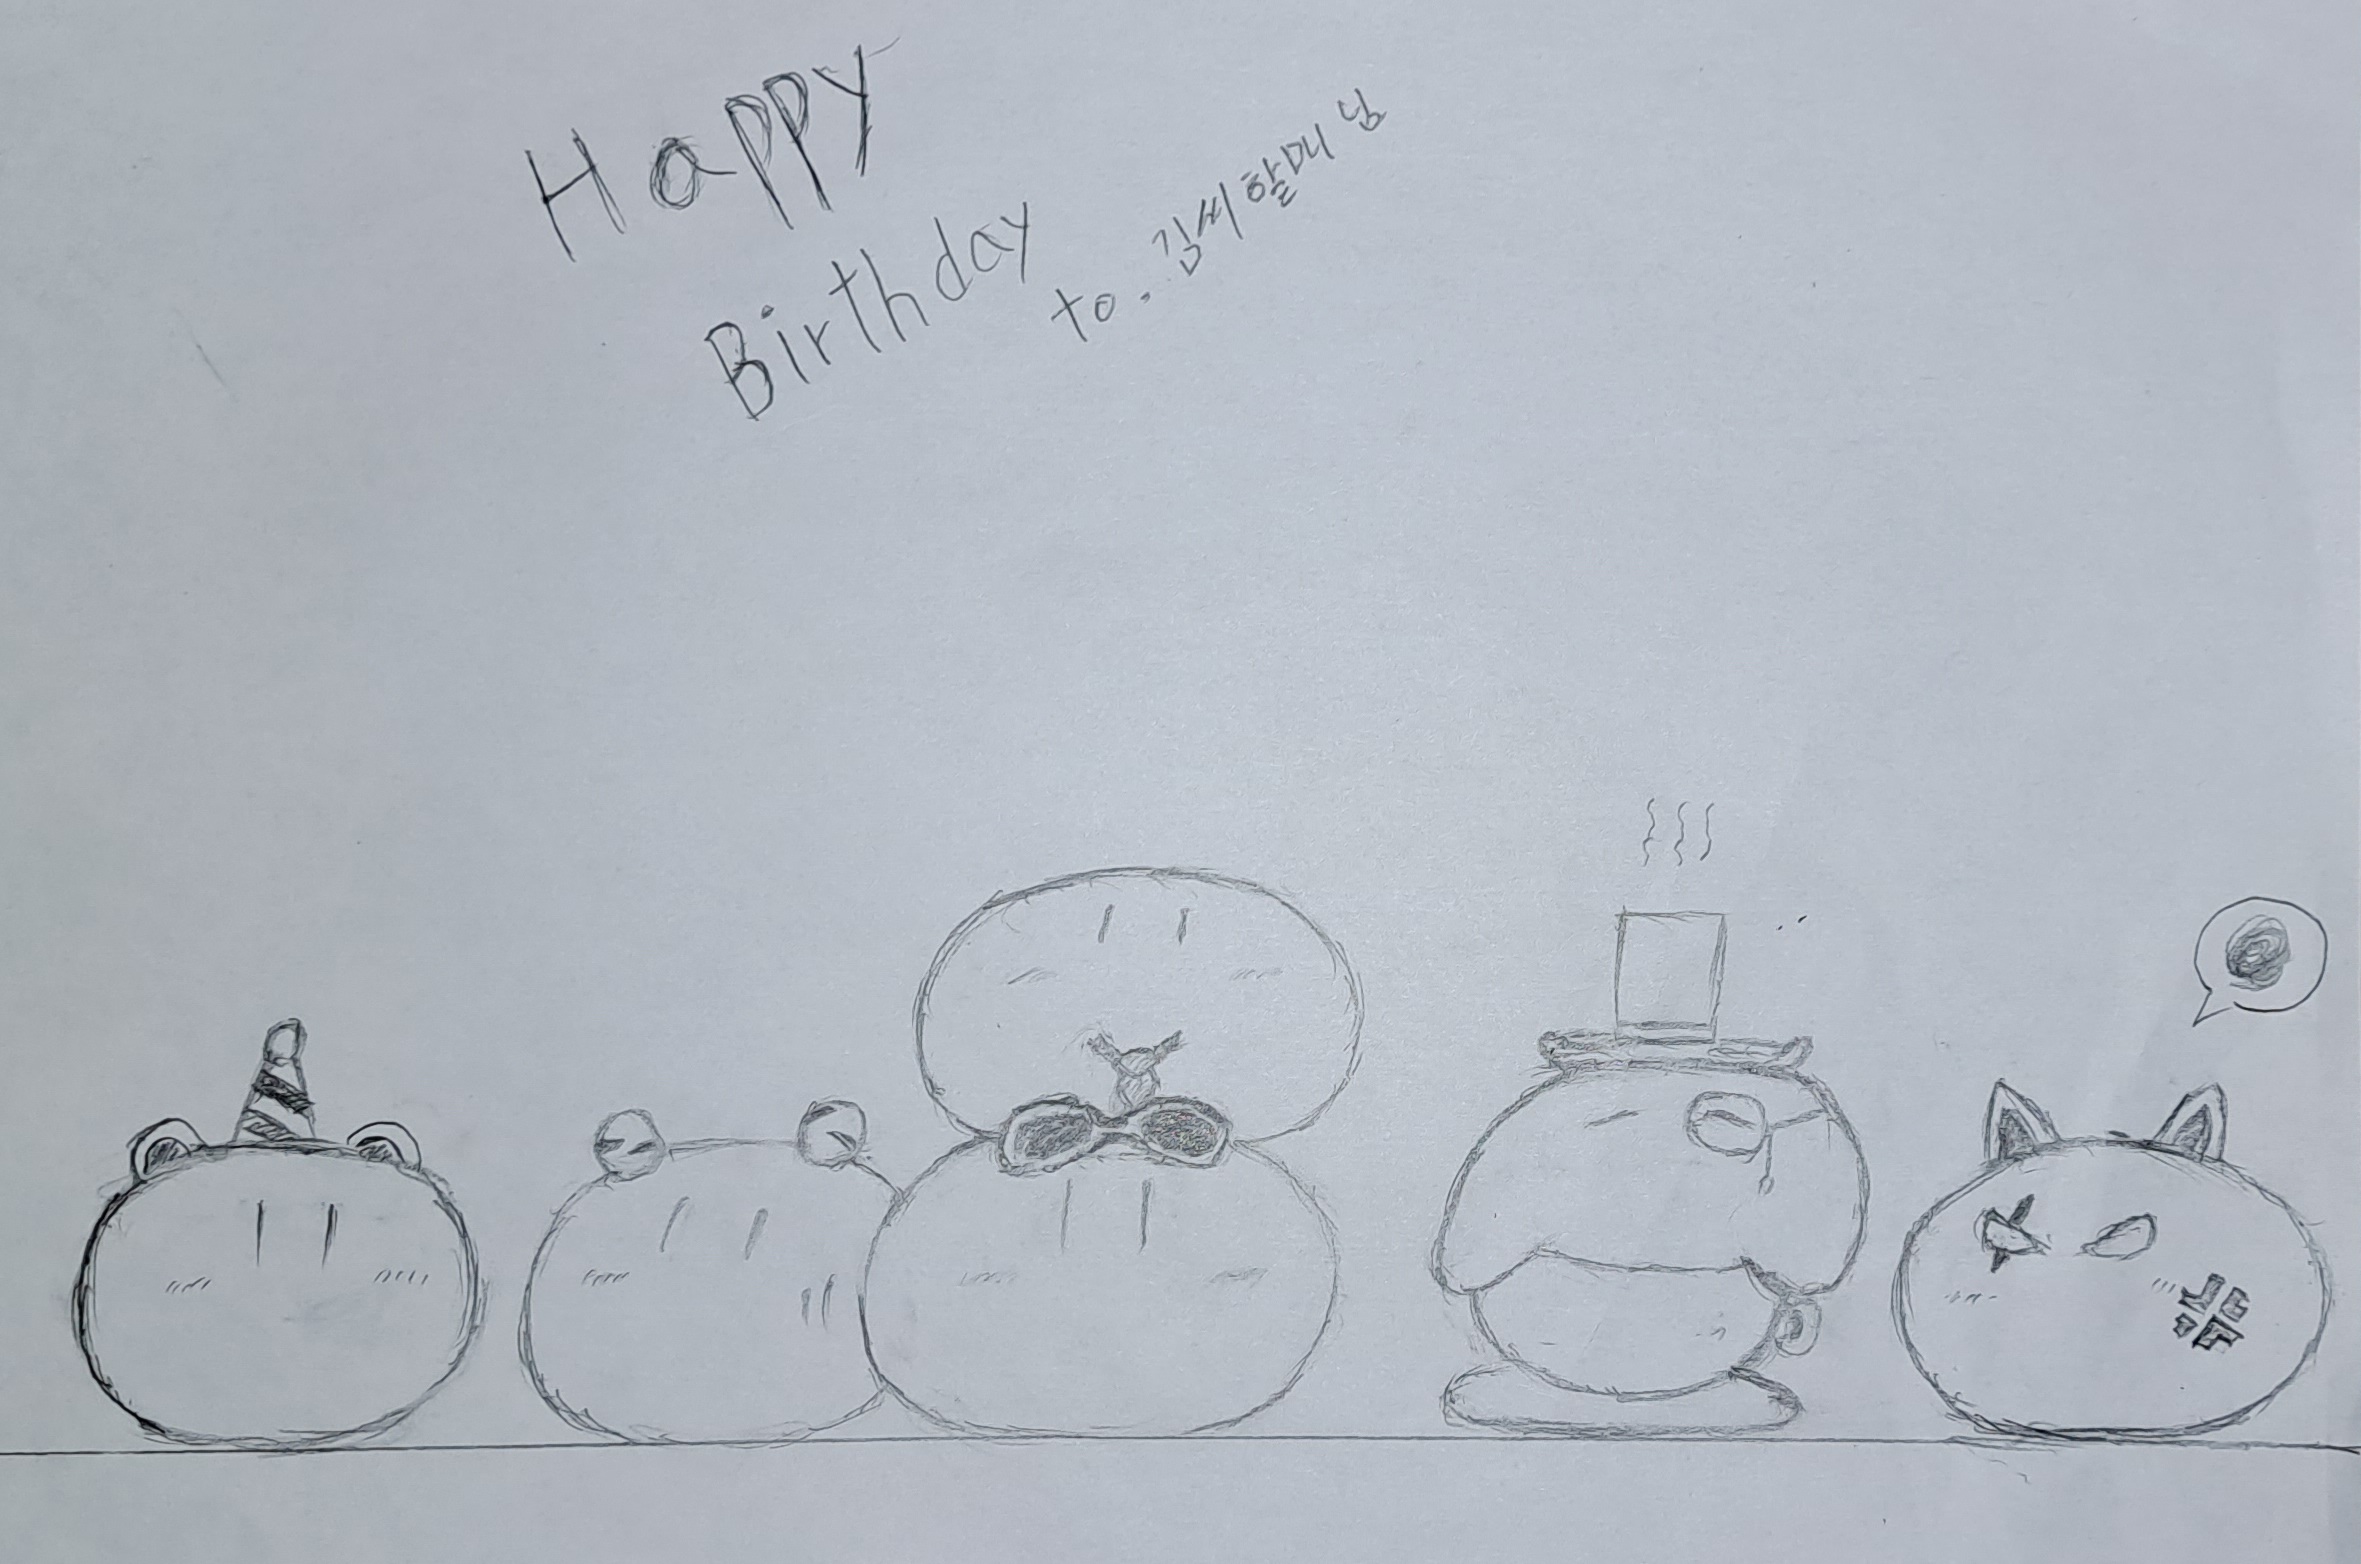 Happy
Birthday
to. 김씨할머님